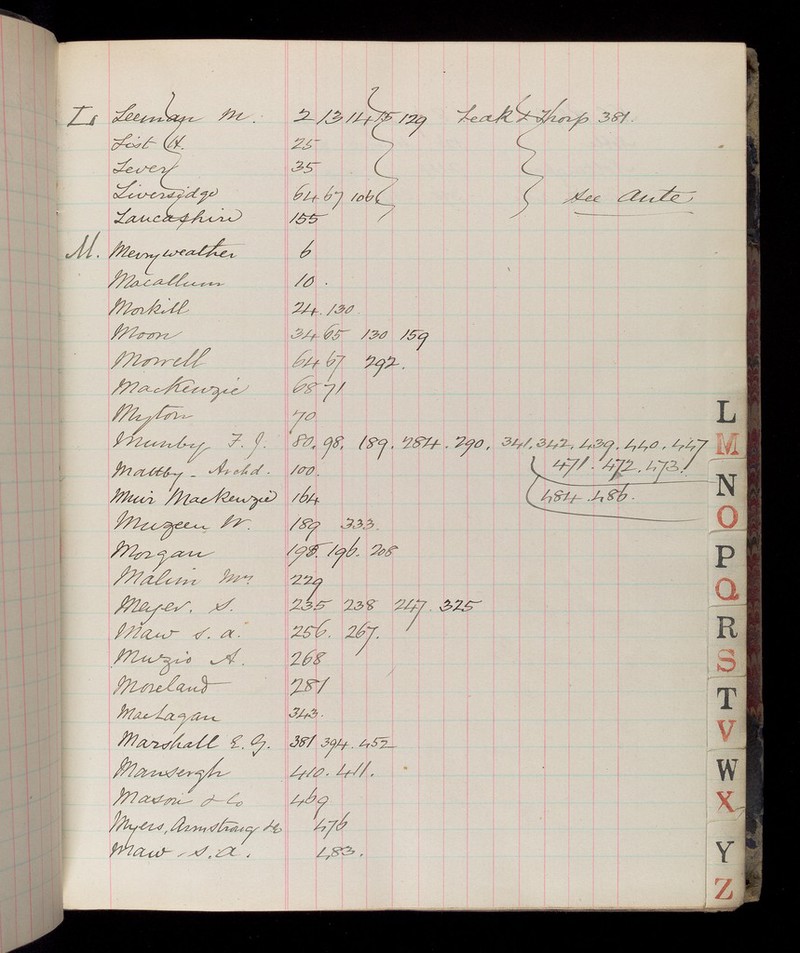 L. Leeman M. 2 13 14 15 129 Leak & Thorp 381.
List H. 25
Lever 35
Liversidge 64 67 106 see Ante
Lancashire 155
M. Merryweather 6
Macallum 10.
Morkill 24. 130
Moon 34 65 130 159
Morrell 64 67 292.
MacKenzie 68 71
Myton 70
Munby F. J. 80. 98. 189. 284. 290. 341. 342. 439. 440. 447
471. 472. 473.
Maltby - Archd. 100.
Muir MacKenzie 164
484. 486.
Muzeen W. 189 333.
Morgan 195. 196. 208
Malim Mrs 229
Meyer. S. 235 238 247. 325
Maw S. A. 256. 267.
Muzio A. 268
Moreland 281
MacLagan 343.
Marshall E. G. 381 394. 452
Mansergh 410. 411.
Mason & Co 469
Myers, Armstrong & Co 476
Maw - S. A. 483.
L
M
N
O
P
Q
R
S
T
V
W
X
Y
Z